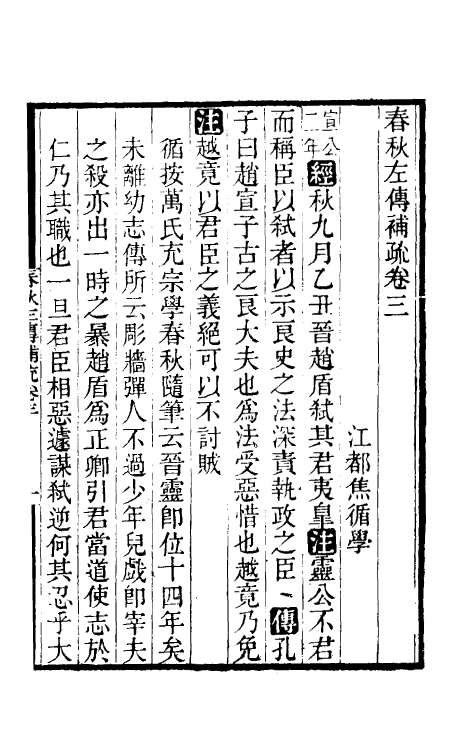 春秋左傳補疏卷三
江都焦循學
宣公二年經秋九月乙丑晉趙盾弑其君夷皐注靈公不君
而稱臣以弑者以示良史之法深責執政之臣、傳孔
子曰趙宣子古之良大夫也爲法受惡惜也越竟乃免
注越竟以君臣之義絕可以不討賊
循按萬氏充宗學春秋隨筆云晉靈卽位十四年矣
未離幼志傳所云彫牆彈人不過少年兒戲卽宰夫
之殺亦出一時之暴趙盾爲正卿引君當道使志於
仁乃其職也一旦君臣相惡遽謀弑逆何其忍乎大
春秋左傳補疏卷三
一